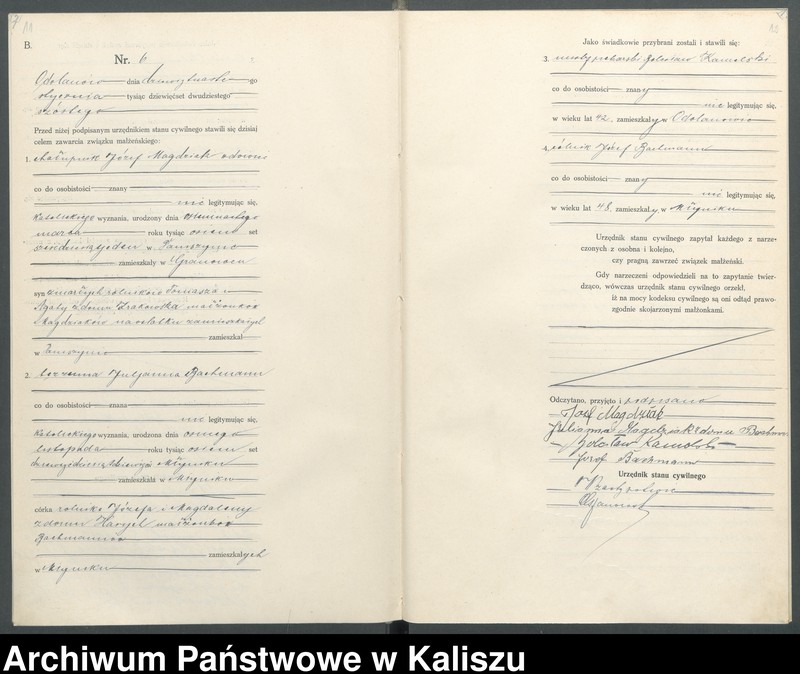 11
B.
Nr. 6
Odolanów dnia dziewiętnaste-go
stycznia tysiąc dziewięćset dwudziestego
szóstego
Przed niżej podpisanym urzędnikiem stanu cywilnego stawili się dzisiaj
celem zawarcia związku małżeńskiego:
1. chałupnik Józef Magdziak
co do osobistości znany
nie legitymując się,
katolickiego wyznania, urodzony dnia osiemnastego
marca roku tysiąc osiem set
w
zamieszkały w Granowcu
syn zmarłych rolników Tomasza i
Agaty z domu małżonków
Magdziaków na ostatku zamieszkałych
zamieszkał
w
2. Juljanna Bachmann
co do osobistości znana
nie legitymując się,
katolickiego wyznania, urodzona dnia ósmego
listopada roku tysiąc osiem set
w Młyniku
zamieszkała w Młyniku
córka rolnika Józefa i Magdaleny
z domu małżonków
Bachmannów
zamieszkałych
w Młyniku
Jako świadkowie przybrani zostali i stawili się:
3. Bolesław Kamolski
co do osobistości znany
nie legitymując się,
w wieku lat 42, zamieszkały w Odolanowie
4. rolnik Józef Bachmann
co do osobistości znany
nie legitymując się,
w wieku lat 48, zamieszkały w Młyniku
Urzędnik stanu cywilnego zapytał każdego z narze-
czonych z osobna i kolejno,
czy pragną zawrzeć związek małżeński.
Gdy narzeczeni odpowiedzieli na to zapytanie twier-
dząco, wówczas urzędnik stanu cywilnego orzekł,
iż na mocy kodeksu cywilnego są oni odtąd prawo-
zgodnie skojarzonymi małżonkami.
Odczytano, przyjęto i podpisano
Józef Magdziak
Julianna Magdziak z domu Bachmann
Bolesław Kamolski
Józef Bachmann
Urzędnik stanu cywilnego
W zastępstwie
Archiwum Państwowe w Kaliszu